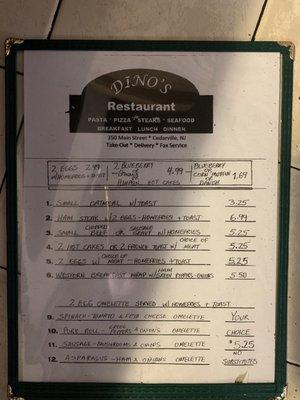 DINO'S
Restaurant
PASTA • PIZZA • STEAKS • SEAFOOD
BREAKFAST LUNCH DINNER
350 Main Street * Cedarville, NJ
Take-Out * Delivery * Fax Service
2 EGGS 2.99
W/HOMEFRIES + TOAST
2 BLUEBERRY
HOT CAKES 4.99
BLUEBERRY
OR CORN MUFFIN 1.69
OR DANISH
1. SMALL OATMEAL W/ TOAST 3.25
2. HAM STEAK W/ 2 EGGS - HOMEFRIES + TOAST 6.99
3. SMALL CHOPPED BEEF OR SAUSAGE GRAVY W/ HOMEFRIES 5.25
4. 2 HOT CAKES OR 2 FRENCH TOAST W/ CHOICE OF MEAT 5.25
5. 2 EGGS W/ CHOICE OF MEAT - HOMEFRIES + TOAST 5.25
6. WESTERN BREAKFAST WRAP W/ HAM GREEN PEPPERS - ONIONS 5.50
2 EGG OMELETTE SERVED W/ HOMEFRIES + TOAST
9. SPINACH - TOMATO & FETA CHEESE OMELETTE YOUR
10. PORK ROLL - GREEN PEPPERS & ONIONS OMELETTE CHOICE
11. SAUSAGE - MUSHROOMS & ONIONS OMELETTE $5.25
12. ASPARAGUS - HAM & ONIONS OMELETTE NO SUBSTITUTES